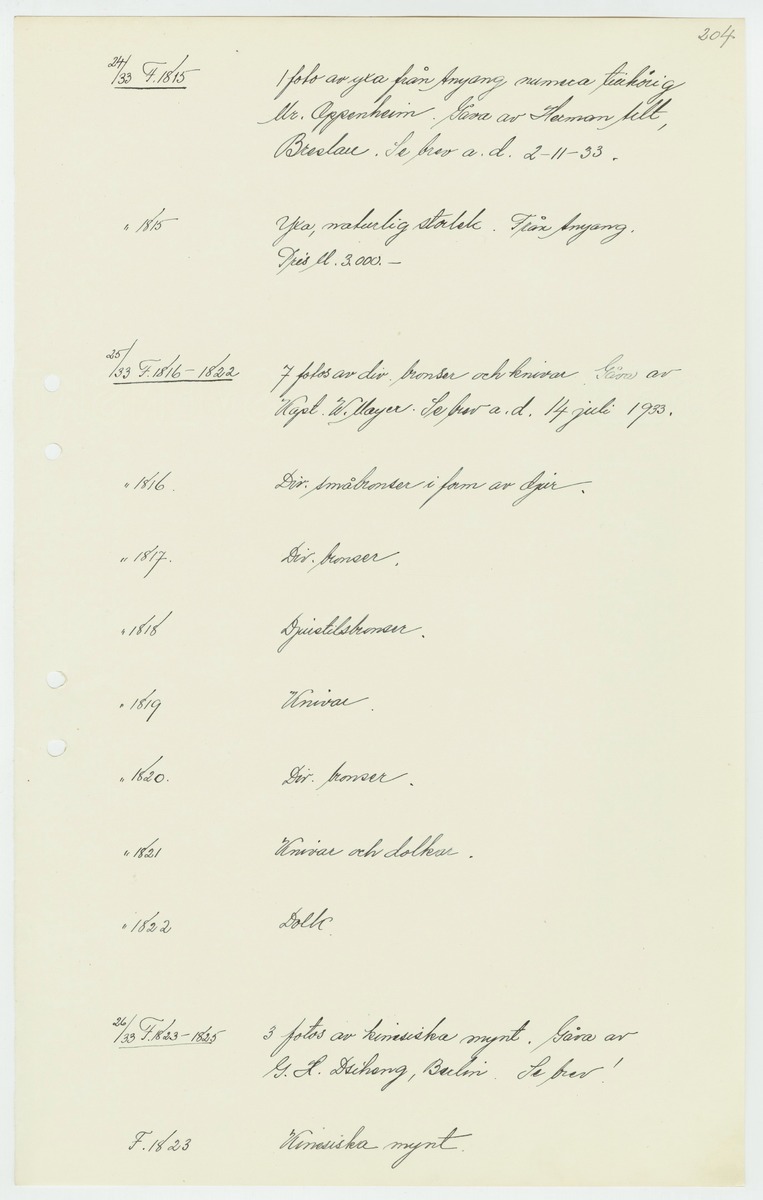 204
24/33 F.1815 1 foto av yxa från Anyang numera tillhörig
Mr. Oppenheim. Gåva av Herman
Breslau. Se brev a.d. 2-11-33.
" 1815 Yxa, naturlig storlek. Från Anyang.
Pris M. 3.000.-
25/33 F.1816-1822 7 fotos av div. bronser och knivar. Gåva av
Kapt. W. Mayer. Se brev a.d. 14 juli 1933.
" 1816. Div. småbronser i form av djur.
" 1817. Div. bronser.
" 1818 Djurstilsbronser.
" 1819 Knivar.
" 1820. Div. bronser.
" 1821 Knivar och dolkar.
" 1822 Dolk.
26/33 F.1823-1825 3 fotos av kinesiska mynt. Gåva av
G. H. Dsiheng, Berlin. Se brev!
F.1823 Kinesiska mynt.